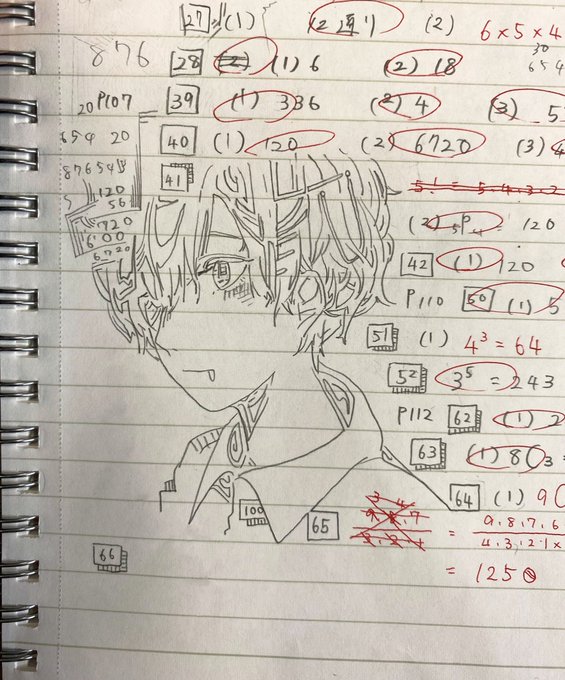 27 (1) 12通り (2) 6×5×4
876
30
654
28 (1) 6 (2) 18
20 P107
39 (1) 336 (2) 4 (3) 5
654 20
40 (1) 120 (2) 6720 (3) 4
87654
41
120
56
720
6720
(2) ₅P₄ = 120
42 (1) 120
P110 50 (1) 5
51 (1) 4³ = 64
52 3⁵ = 243
P112 62 (1) 2
63 (1) 8C3 =
64 (1) 9C
100
65 = 9.8.7.6
4.3.2.1×
66 = 125